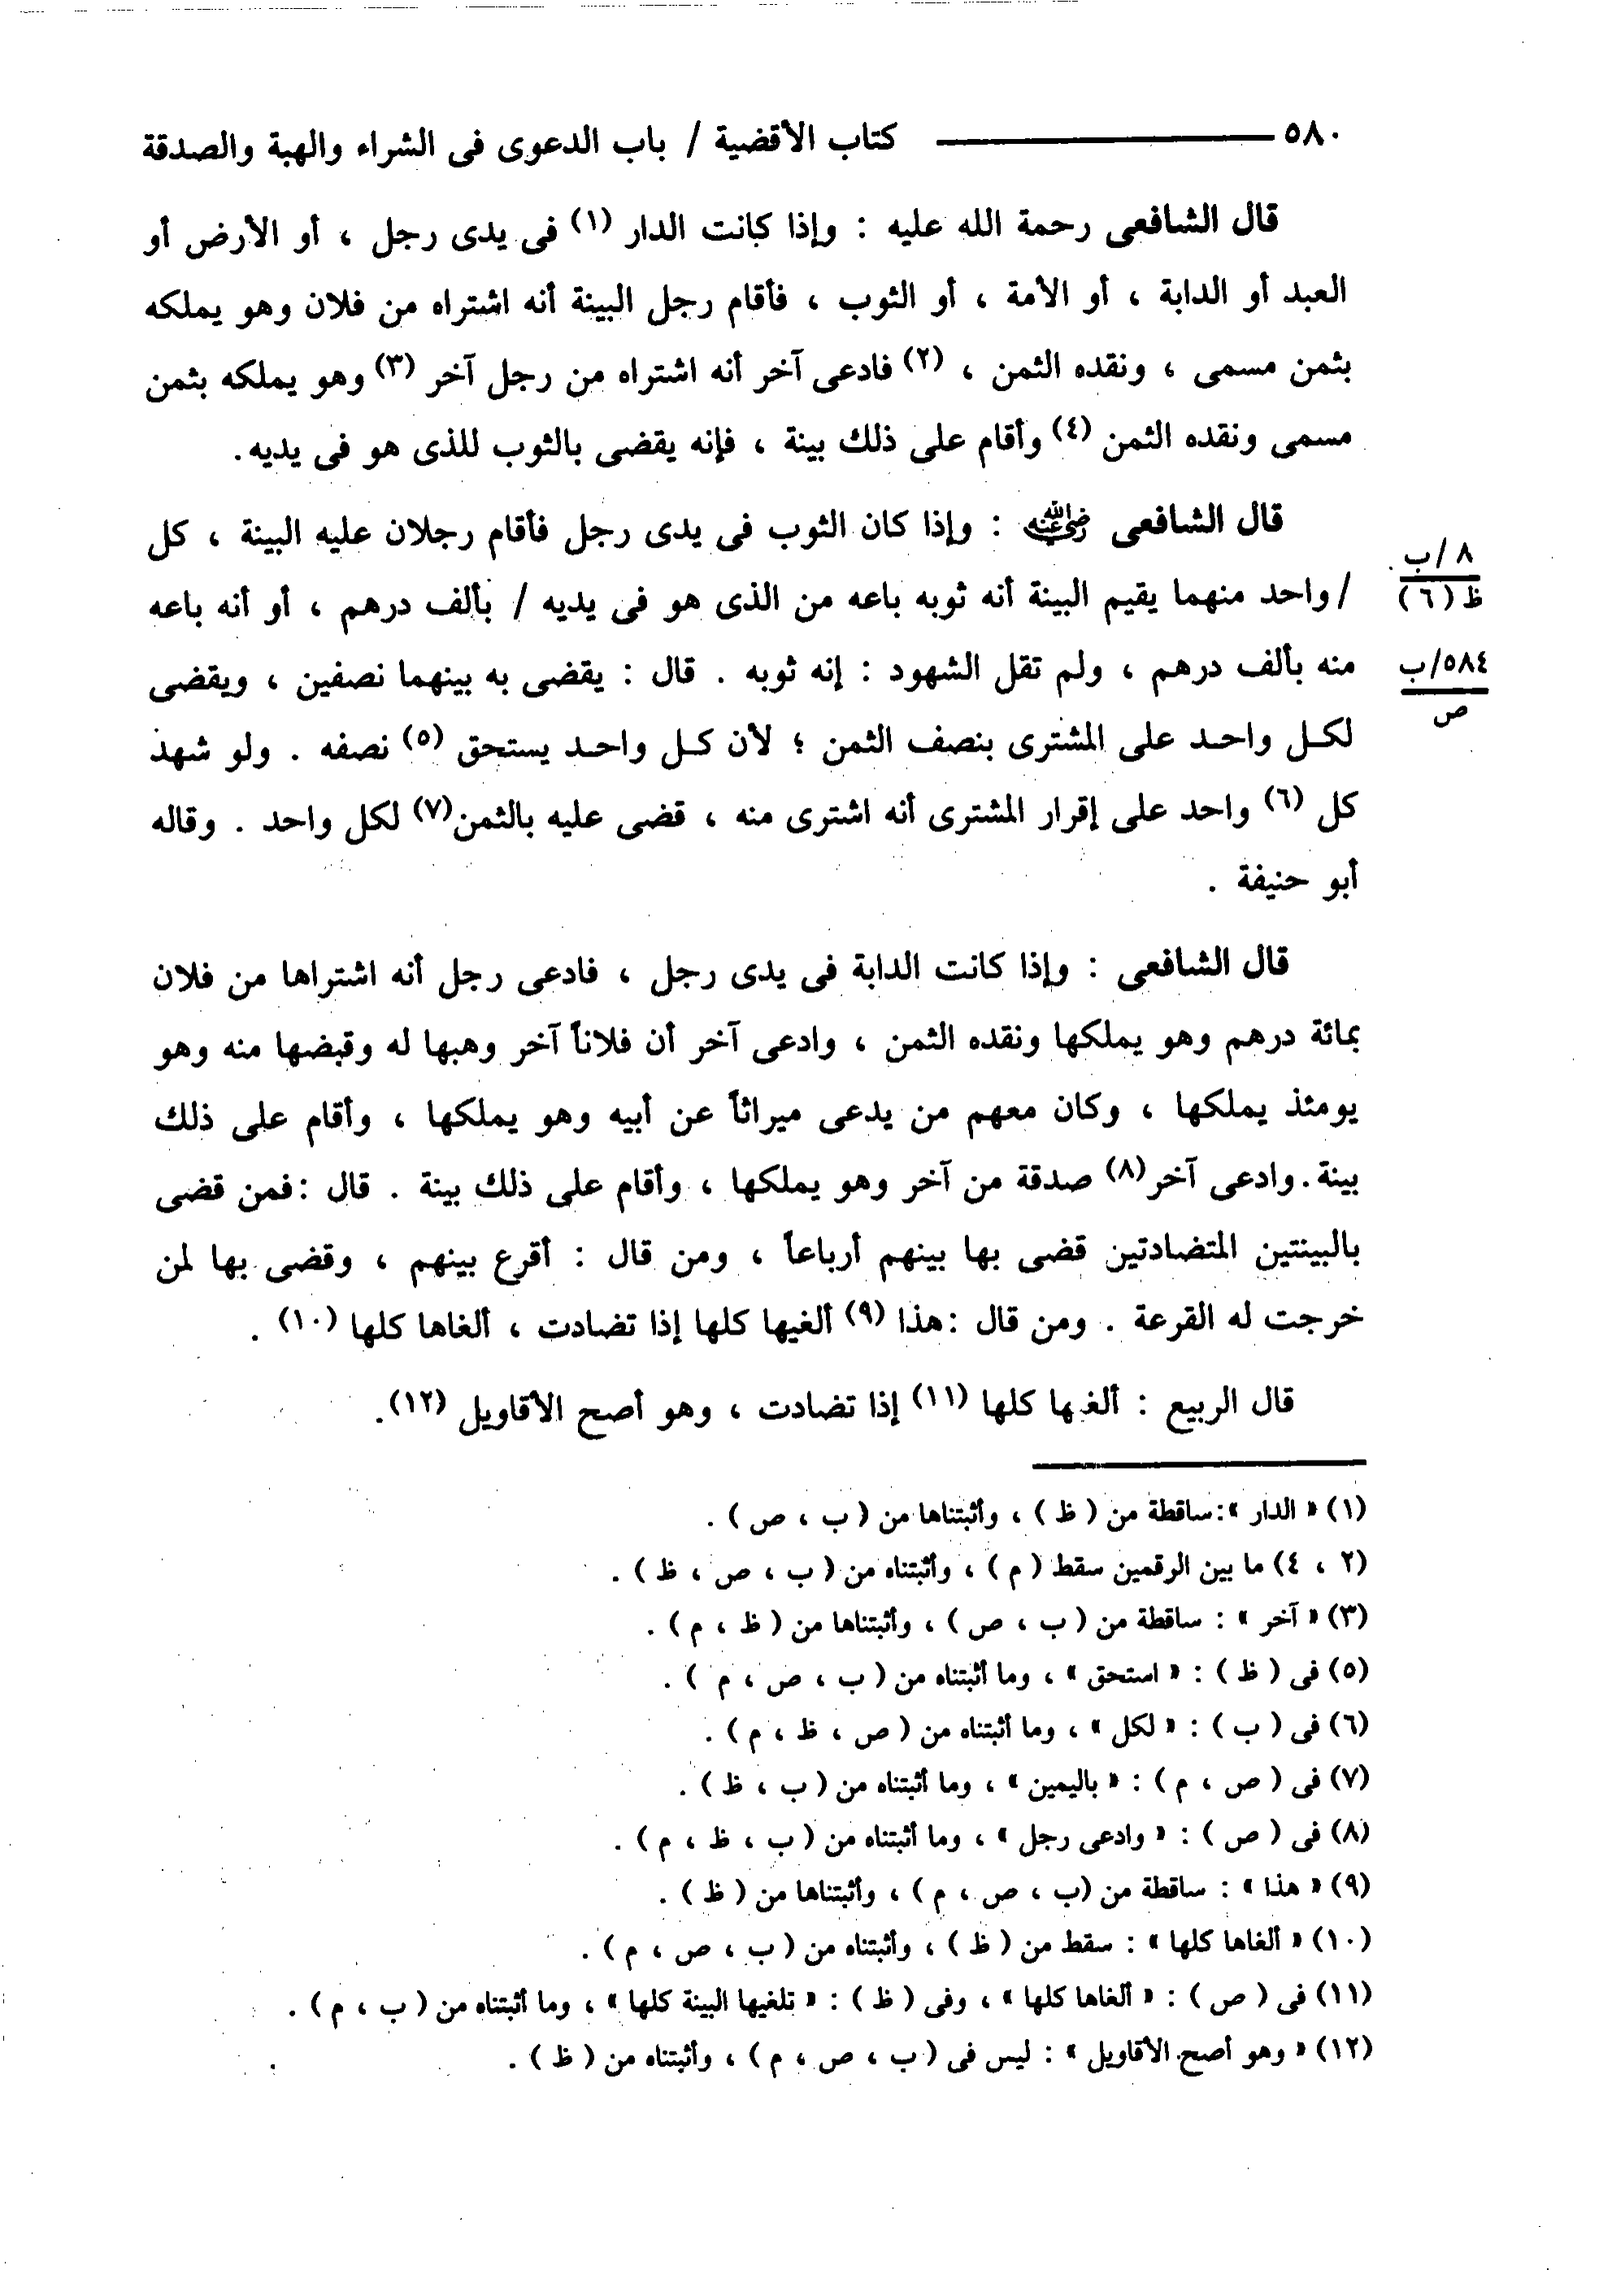 ٥٨٠ ـــــــــ كتاب الأقضية / باب الدعوى فى الشراء والهبة والصدقة
قال الشافعى رحمة الله عليه : وإذا كانت الدار (١) فى يدى رجل ، أو الأرض أو
العبد أو الدابة ، أو الأمة ، أو الثوب ، فأقام رجل البينة أنه اشتراه من فلان وهو يملكه
بثمن مسمى ، ونقده الثمن ، (٢) فادعى آخر أنه اشتراه من رجل آخر (٣) وهو يملكه بثمن
مسمى ونقده الثمن (٤) وأقام على ذلك بينة ، فإنه يقضى بالثوب للذى هو فى يديه .
قال الشافعى رضي الله عنه : وإذا كان الثوب فى يدى رجل فأقام رجلان عليه البينة ، كل
٨ /ب
ظ (٦)
/ واحد منهما يقيم البينة أنه ثوبه باعه من الذى هو فى يديه / بألف درهم ، أو أنه باعه
٥٨٤/ب
ص
منه بألف درهم ، ولم تقل الشهود : إنه ثوبه . قال : يقضى به بينهما نصفين ، ويقضى
لكل واحد على المشترى بنصف الثمن ؛ لأن كل واحد يستحق (٥) نصفه . ولو شهد
كل (٦) واحد على إقرار المشترى أنه اشترى منه ، قضى عليه بالثمن(٧) لكل واحد . وقاله
أبو حنيفة .
قال الشافعى : وإذا كانت الدابة فى يدى رجل ، فادعى رجل أنه اشتراها من فلان
بمائة درهم وهو يملكها ونقده الثمن ، وادعى آخر أن فلاناً آخر وهبها له وقبضها منه وهو
يومئذ يملكها ، وكان معهم من يدعى ميراثاً عن أبيه وهو يملكها ، وأقام على ذلك
بينة . وادعى آخر(٨) صدقة من آخر وهو يملكها ، وأقام على ذلك بينة . قال :فمن قضى
بالبينتين المتضادتين قضى بها بينهم أرباعاً ، ومن قال : أقرع بينهم ، وقضى بها لمن
خرجت له القرعة . ومن قال :هذا (٩) ألغيها كلها إذا تضادت ، ألغاها كلها (١٠) .
قال الربيع : ألغها كلها (١١) إذا تضادت ، وهو أصح الأقاويل (١٢).
(١) « الدار »:ساقطة من ( ظ ) ، وأثبتناها من ( ب ، ص ) .
(٢ ، ٤) ما بين الرقمين سقط ( م ) ، وأثبتناه من ( ب ، ص ، ظ ) .
(٣) « آخر » : ساقطة من ( ب ، ص ) ، وأثبتناها من ( ظ ، م ) .
(٥) فى ( ظ ) : « استحق » ، وما أثبتناه من ( ب ، ص ، م ) .
(٦) فى ( ب ) : « لكل » ، وما أثبتناه من ( ص ، ظ ، م ) .
(٧) فى ( ص ، م ) : « باليمين » ، وما أثبتناه من ( ب ، ظ ) .
(٨) فى ( ص ) : « وادعى رجل » ، وما أثبتناه من ( ب ، ظ ، م ) .
(٩) « هذا » : ساقطة من (ب ، ص ، م ) ، وأثبتناها من ( ظ ) .
(١٠) « ألغاها كلها » : سقط من ( ظ ) ، وأثبتناه من ( ب ، ص ، م ) .
(١١) فى ( ص ) : « ألغاها كلها » ، وفى ( ظ ) : « تلغيها البينة كلها » ، وما أثبتناه من ( ب ، م ) .
(١٢) « وهو أصح الأقاويل » : ليس فى ( ب ، ص ، م ) ، وأثبتناه من ( ظ ) .